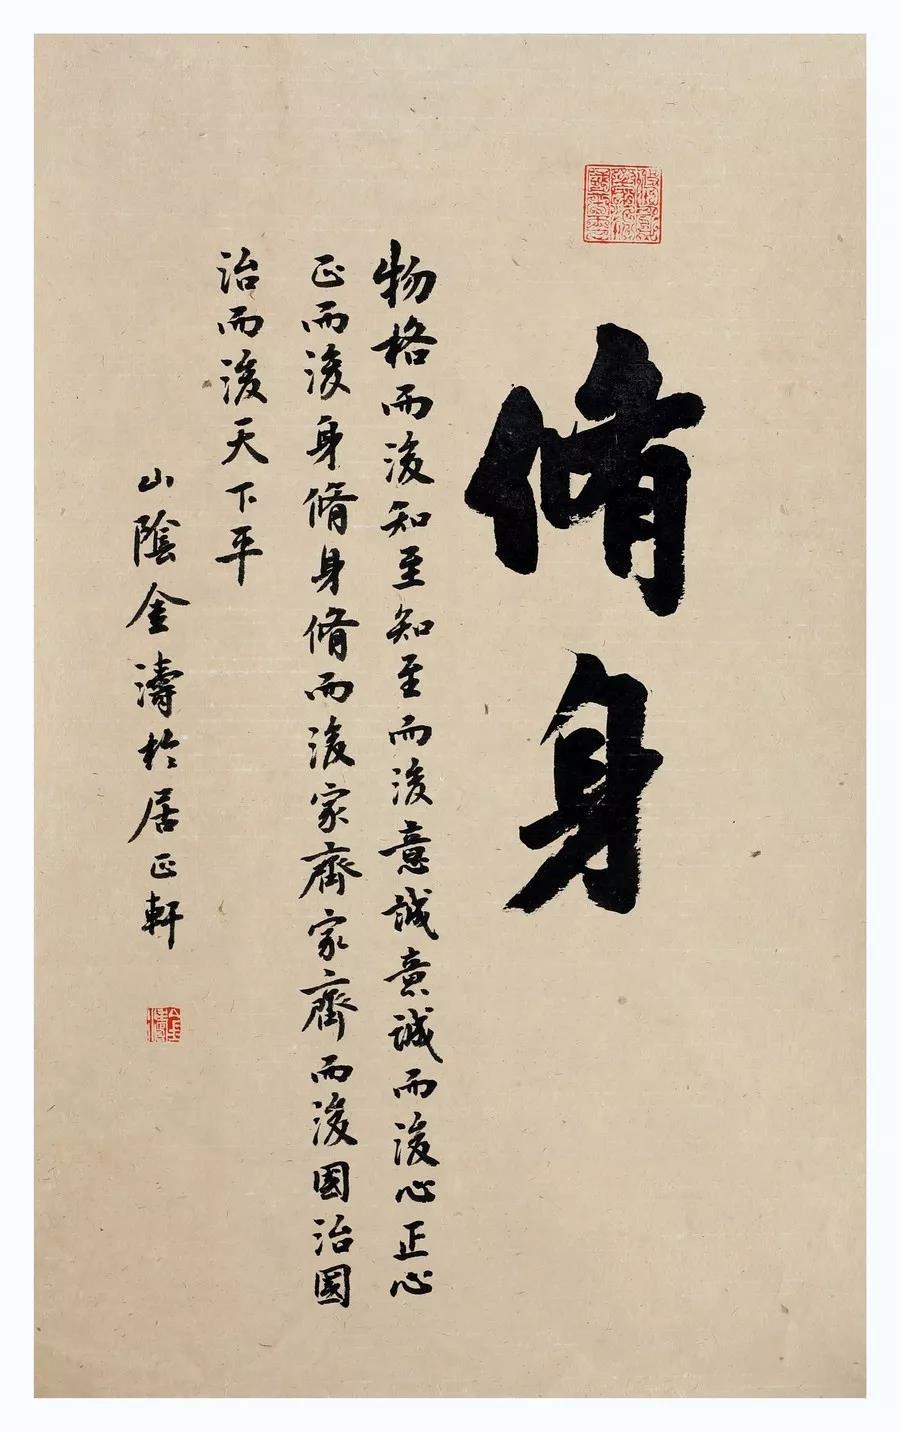 脩身
物格而後知至知至而後意誠意誠而後心正心
正而後身脩身脩而後家齊家齊而後國治國
治而後天下平
山陰金濤於居正軒
金濤